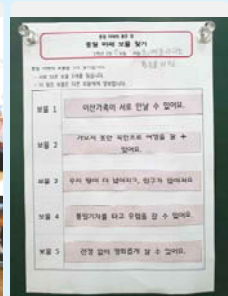 통일 미래의 꿈을 찾
통일 미래 보물 찾기
보물 1 이산가족이 서로 만날 수 있어요.
보물 2 가보지 못한 북한으로 여행을 갈 수
있어요.
보물 3 우리 땅이 더 넓어지고, 인구가 많아져요
보물 4 통일기차를 타고 유럽을 갈 수 있어요.
보물 5 전쟁 없이 평화롭게 살 수 있어요.